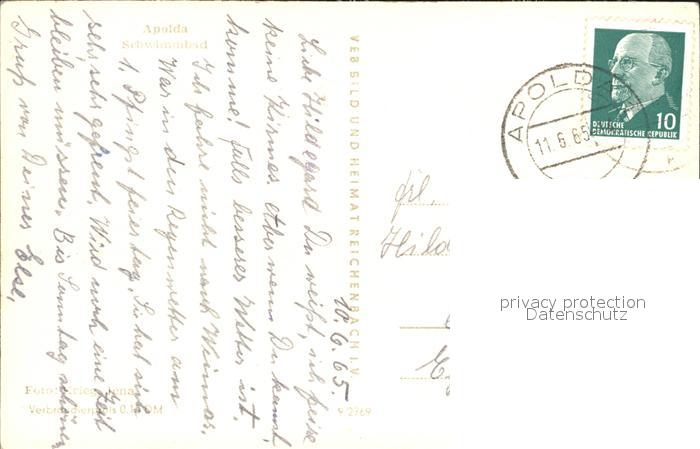 Apolda
Schwimmbad
10.6.65.
Liebe Hildegard Du weißt, ich feire
keine Kirmes. Aber wenn Du kannst,
komme! Falls besseres Wetter ist.
Ich fahre nicht nach Weimar.
War in den Regenwetter am
1. Pfingstfeiertag. Sie hat sich
sehr, sehr gefreut. Wird noch eine Zeit
bleiben müssen. Bis Sonntag schönen
Gruß von Deiner Else,
Foto: Krieg Jena
Verbraucherpreis 0.18 DM
9 2769
VEB BILD UND HEIMAT REICHENBACH I.V.
APOLDA
11.6.65
10
DEUTSCHE
DEMOKRATISCHE REPUBLIK
Frl.
privacy protection
Datenschutz